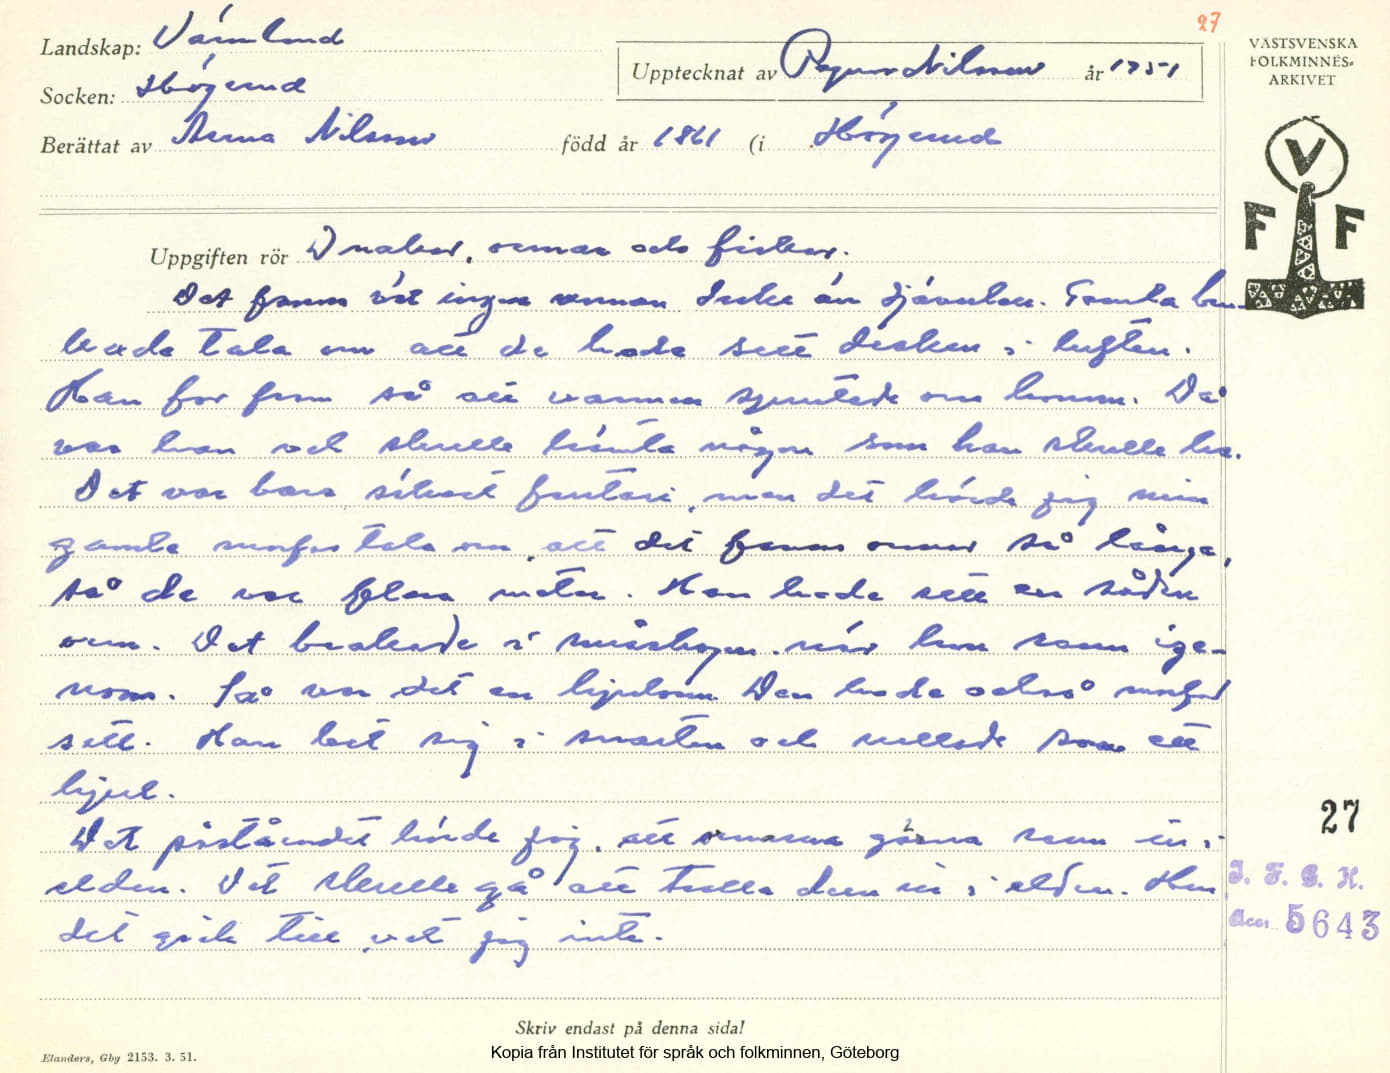 27
Landskap: Värmland
VÄSTSVENSKA
FOLKMINNES-
ARKIVET
Upptecknat av Ragnar Nilsson år 1951
Socken: Högerud
Berättat av Anna Nilsson född år 1861 (i Högerud
V
F F
Uppgiften rör Drakar, ormar och fiskar.
Det fanns väl ingen annan drake än djävulen. Gamla
hade tala om att de hade sett draken i luften.
Han for fram så att varmen sprutade om honom. Då
var han och skulle hämta någon som han skulle ha.
Det var bara sådant fantasi, men det hörde jig min
gamle morfar tala om, att det fanns ormar så långa,
så de var flera meter. Han hade sett en såden
orm. Det brakade i småskogen när han rann ige-
nom. Så var det en hjulorm. Den hade också morfar
sett. Han bet sig i snarten och rullade som ett
hjul.
Det påståendet hörde jig, att ormarna gärna rann in i
elden. Det skulle gå att trolla dem in i elden. Hur
det gick till, vet jig inte.
27
I. F. G. H.
Acc. 5643
Skriv endast på denna sida!
Elanders, Gbg 2153. 3. 51.
Kopia från Institutet för språk och folkminnen, Göteborg